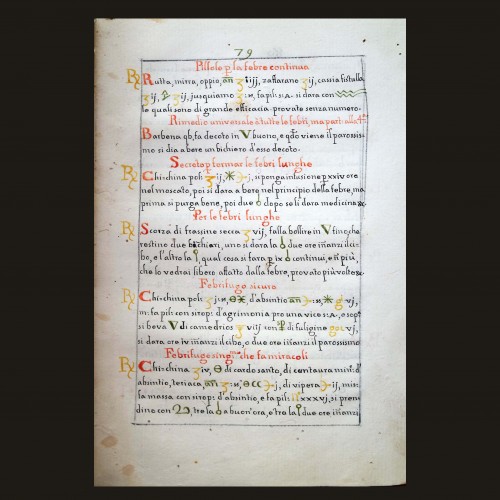 79
Pillole p la febre continua
℞ Rutta, mirra, oppio, añ ʒ iiij, zaffarane ʒij, cassia fistula
ʒij, ʒij, jusquiamo ʒ:s, fa pil: s:a: si dara con
le quali sono di grande efficacia provate senza numero.
Rimedio universale à tutte le febri, ma part: alla 4ª
Barbena qb, fa decoto in V buono, e qdo viene il parossi
mo si dia a bere un bichiero d'esso decoto.
Secreto p fermar le febri lunghe
℞ Chi:china pol: ʒij, si ponga infusione p xxiv ore
nel moscato, poi si dara a ber nel principio della febre, ma
prima si purga bene, poi due dopo se li dara medicina
Per le febri lunghe
℞ Scorza di frassine secca ʒ vij, falla bollire in V fino che
restino due bichieri, uno si dara la due ore iñanzi il ci
bo, e l'altro la qual cosa si fara p ix continui, e il piu,
che lo vedrai libero affatto dalla febre, provato più volte
Febrifugo sicuro
℞ Chi:china pol: ʒj:s, d'absintio añ :s,
m: fa pil: con sirop: d'agrimonia pro una vice s:a:, e sopª
si beva V di camedrios ʒ viij con di fuligine vj,
si dara ore iv iñanzi il cibo, o due ore iñanzi il parossimo
Febrifugo singre che fa miracoli
℞ Chi:china ʒiv, di cardo santo, di centaura min: d'
absintio, teriaca, añ ʒ:s, j, di vipera ij, mis:
fa massa con sirop: d'absintio, e fa pil: n° xxxvj, si pren
dino con , tre la a buon'ora, e tre la due ore iñanzi